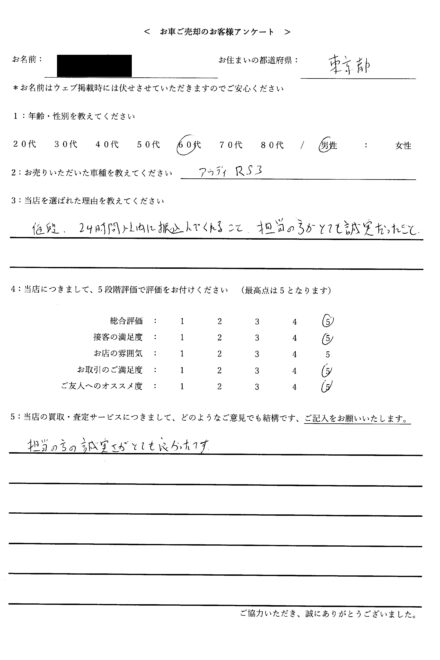 ＜　お車ご売却のお客様アンケート　＞
お名前：　お住まいの都道府県：　東京都
＊お名前はウェブ掲載時には伏せさせていただきますのでご安心ください
1：年齢・性別を教えてください
20代　30代　40代　50代　60代　70代　80代　/　男性　：　女性
2：お売りいただいた車種を教えてください　アウディ RS3
3：当店を選ばれた理由を教えてください
値段、24時間以内に振込んでくれること、担当の方がとても誠実だったこと。
4：当店につきまして、5段階評価で評価をお付けください　（最高点は5となります）
総合評価　：　1　2　3　4　5
接客の満足度　：　1　2　3　4　5
お店の雰囲気　：　1　2　3　4　5
お取引のご満足度　：　1　2　3　4　5
ご友人へのオススメ度　：　1　2　3　4　5
5：当店の買取・査定サービスにつきまして、どのようなご意見でも結構です、ご記入をお願いいたします。
担当の方の誠実さがとても良かったです
ご協力いただき、誠にありがとうございました。